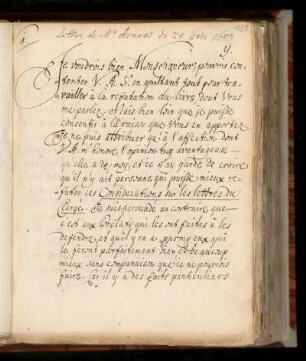 Lettre de Mr Arnaud du 29 1683
Je voudrois bien Monseigneur pouvoir con-
tenter V. A. S. en quittant tout pour tra-
vailler à la refutation du livre dont vous
me parlez. Mais bien loin que je puisse
consentir à la raison que vous en apportez
je ne puis attribuer qu'à l'affection dont
V. A. m'honore l'opinion trop avantageuse
qu'elle a de moy, et ie n'ay garde de croire
qu'il n'y ait personne qui puisse mieux re-
futer les Considerations sur les lettres du
Clergé. Je suis persuadé au contraire que
c'est aux Prelats qui les ont faites à les
defendre et qu'il y en a parmy eux qui
le feront parfaitement bien et beaucoup
mieux sans comparaison que ie ne pourrois
faire. Car il y a des faits particuliers